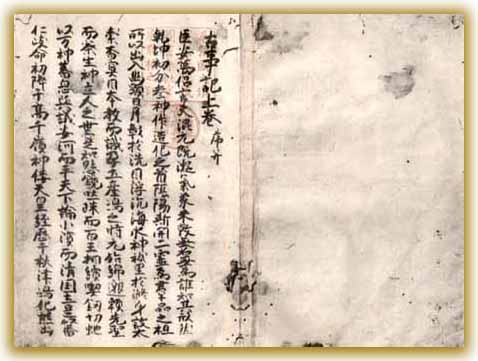 古事記上巻 序并
臣安萬侶言夫混元既凝氣象未效無名無為誰知其形然
乾坤初分参神作造化之首陰陽斯開二霊為群品之祖
所以出入幽顕日月彰於洗目浮沉海水神祇呈於滌身故太
素杳冥因本教而識孕土産嶋之時元始綿邈頼先聖
而察生神立人之世寔知懸鏡吐珠而百王相續喫釼切虵
以万神蕃息與議安河而平天下論小濱而清國土是以番
仁岐命初降于高千嶺神倭天皇経歴于秋津嶋化熊出